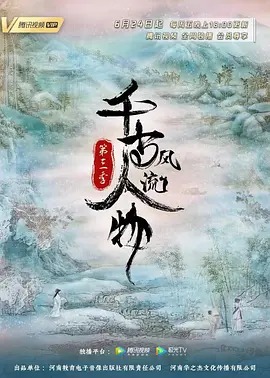 腾讯视频VIP
6月24日起 每周五晚上18:00更新
腾讯视频 全网独播 会员尊享
千古风流人物
第三季
独播平台： 腾讯视频 极光TV
出品单位：河南教育电子音像出版社有限责任公司 河南华之杰文化传播有限公司